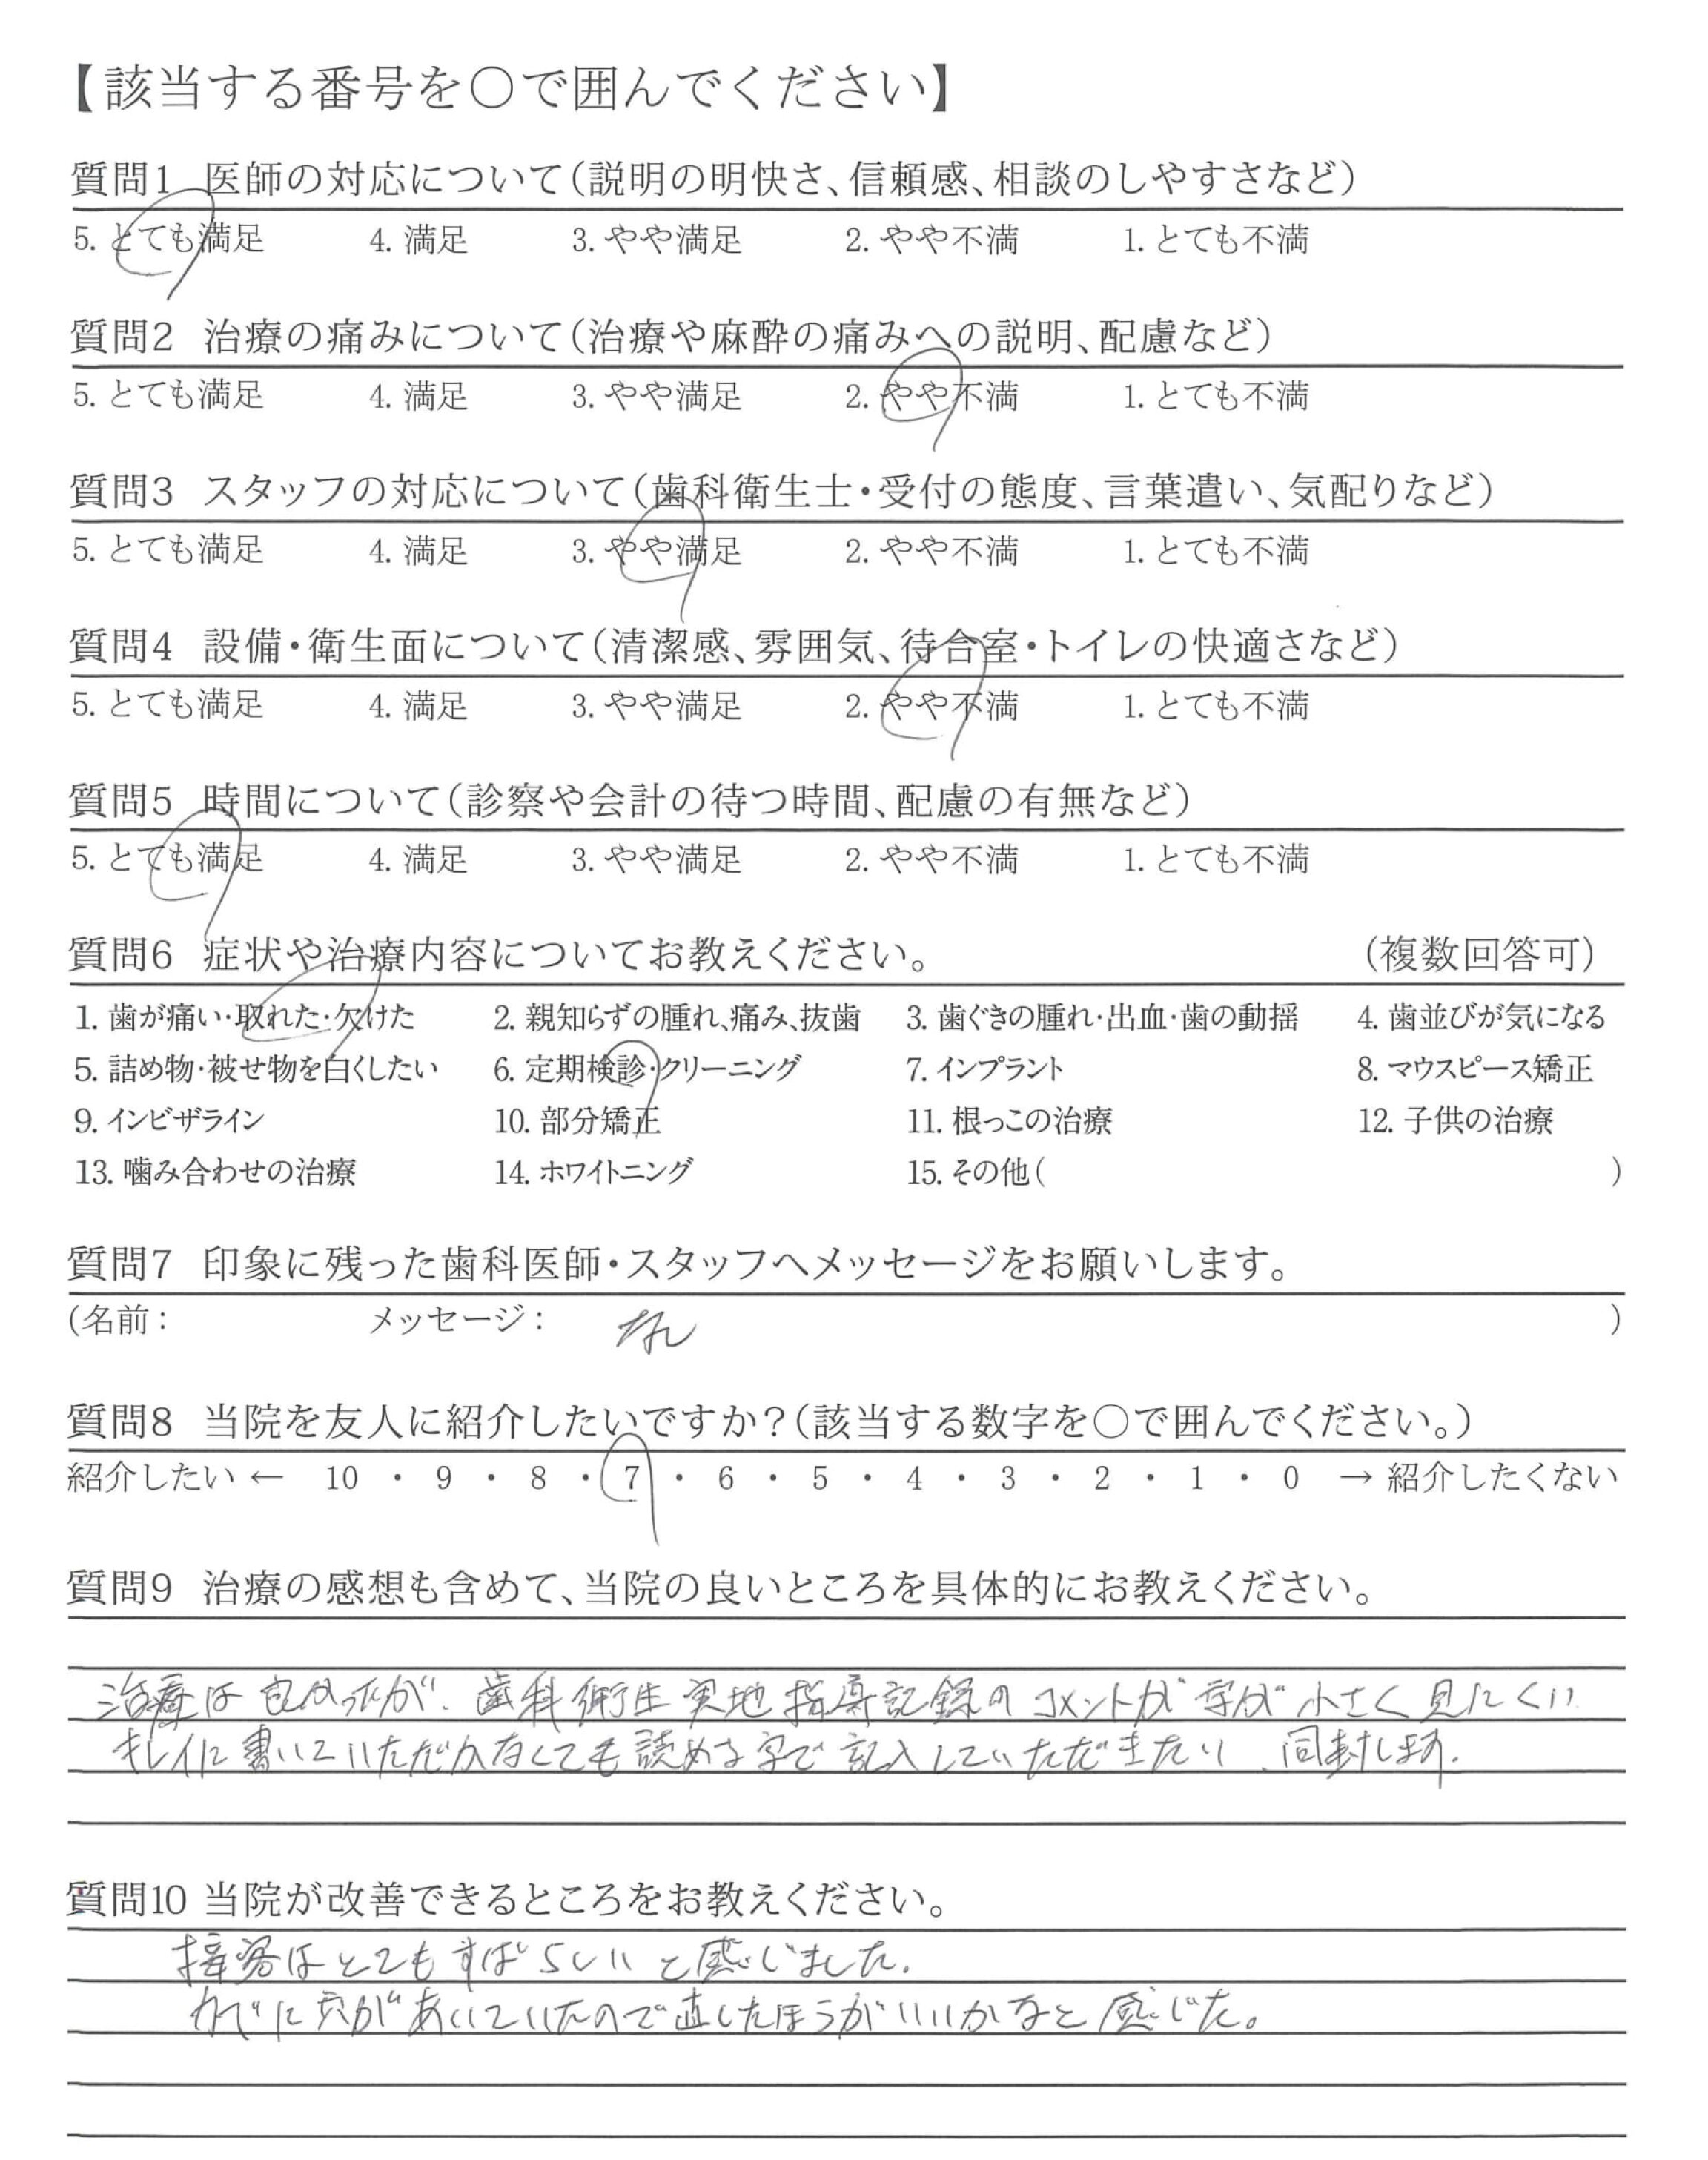 【該当する番号を〇で囲んでください】
質問1 医師の対応について(説明の明快さ、信頼感、相談のしやすさなど)
5. とても満足 4. 満足 3. やや満足 2. やや不満 1. とても不満
質問2 治療の痛みについて(治療や麻酔の痛みへの説明、配慮など)
5. とても満足 4. 満足 3. やや満足 2. やや不満 1. とても不満
質問3 スタッフの対応について(歯科衛生士・受付の態度、言葉遣い、気配りなど)
5. とても満足 4. 満足 3. やや満足 2. やや不満 1. とても不満
質問4 設備・衛生面について(清潔感、雰囲気、待合室・トイレの快適さなど)
5. とても満足 4. 満足 3. やや満足 2. やや不満 1. とても不満
質問5 時間について(診察や会計の待つ時間、配慮の有無など)
5. とても満足 4. 満足 3. やや満足 2. やや不満 1. とても不満
質問6 症状や治療内容についてお教えください。 (複数回答可)
1. 歯が痛い・取れた・欠けた 2. 親知らずの腫れ、痛み、抜歯 3. 歯ぐきの腫れ・出血・歯の動揺 4. 歯並びが気になる
5. 詰め物・被せ物を白くしたい 6. 定期検診・クリーニング 7. インプラント 8. マウスピース矯正
9. インビザライン 10. 部分矯正 11. 根っこの治療 12. 子供の治療
13. 噛み合わせの治療 14. ホワイトニング 15. その他( )
質問7 印象に残った歯科医師・スタッフへメッセージをお願いします。
(名前: メッセージ: )
質問8 当院を友人に紹介したいですか?(該当する数字を〇で囲んでください。)
紹介したい ← 10 ・ 9 ・ 8 ・ 7 ・ 6 ・ 5 ・ 4 ・ 3 ・ 2 ・ 1 ・ 0 → 紹介したくない
質問9 治療の感想も含めて、当院の良いところを具体的にお教えください。
治療は良かったが、歯科衛生実地指導記録のコメントが字が小さく見にくい
キレイに書いていただかなくても読める字で記入していただきたい、同封します.
質問10 当院が改善できるところをお教えください。
接客はとてもすばらしいと感じました.
かべに穴があいていたので直したほうがいいかなと感じた。